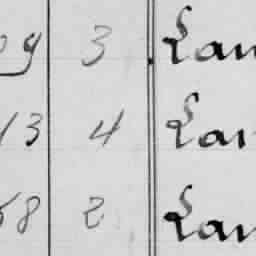 09 3 Lan
13 4 Lan
58 2 Lan